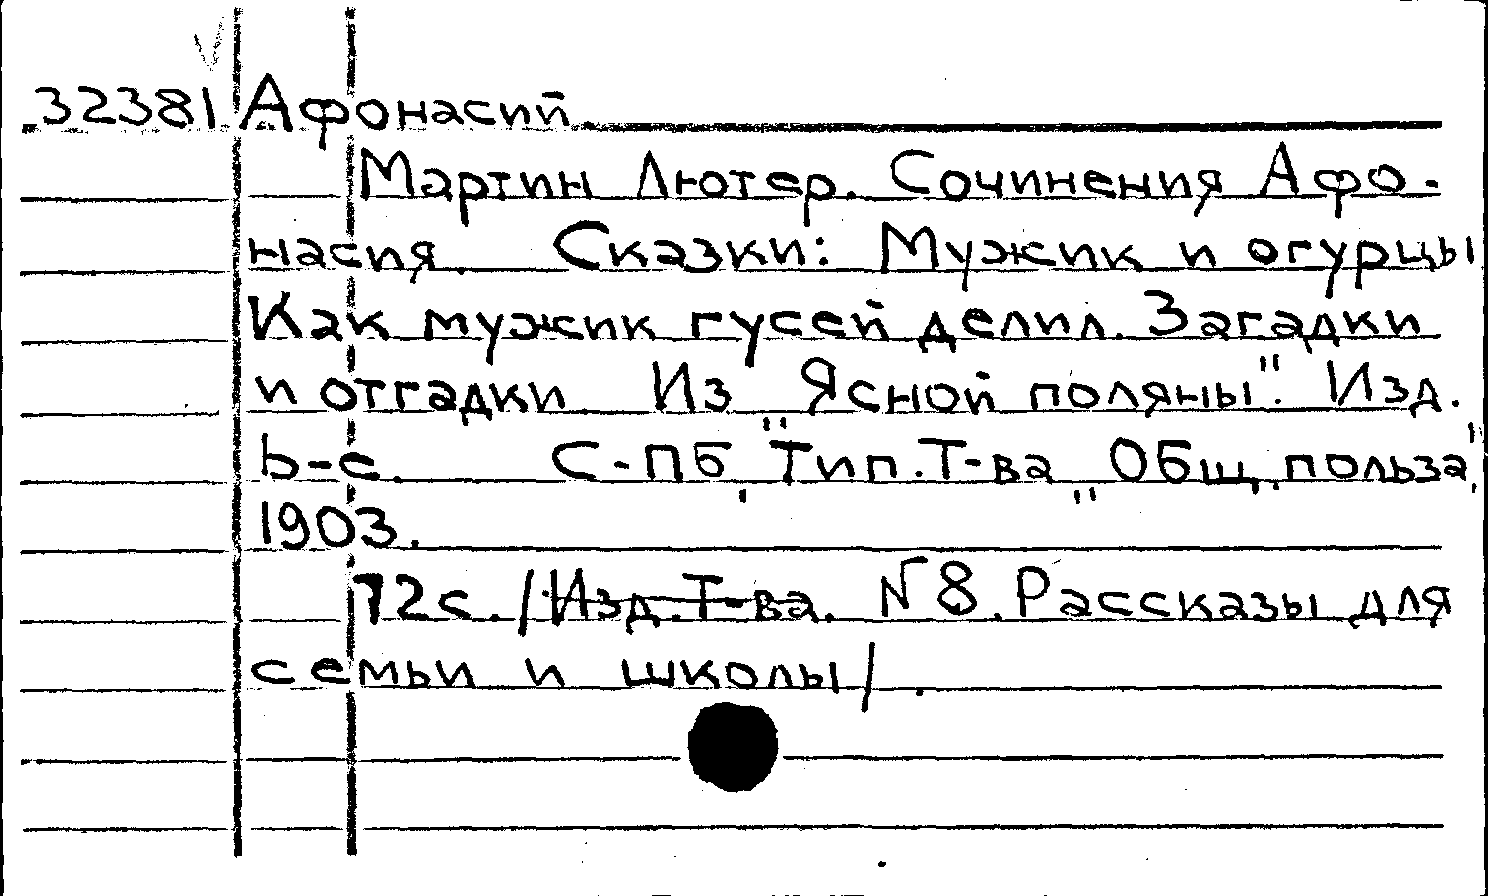 32381 Афонасий.
Мартин Лютер. Сочинения Афо-
насия. Сказки: Мужик и огурцы
Как мужик гусей делил. Загадки
и отгадки. Из „Ясной поляны". Изд.
Ь-е. С-ПБ, Тип. Т-ва „Общ. польза",
1903.
72с. /Изд. Т-ва. N8. Рассказы для
семьи и школы/.